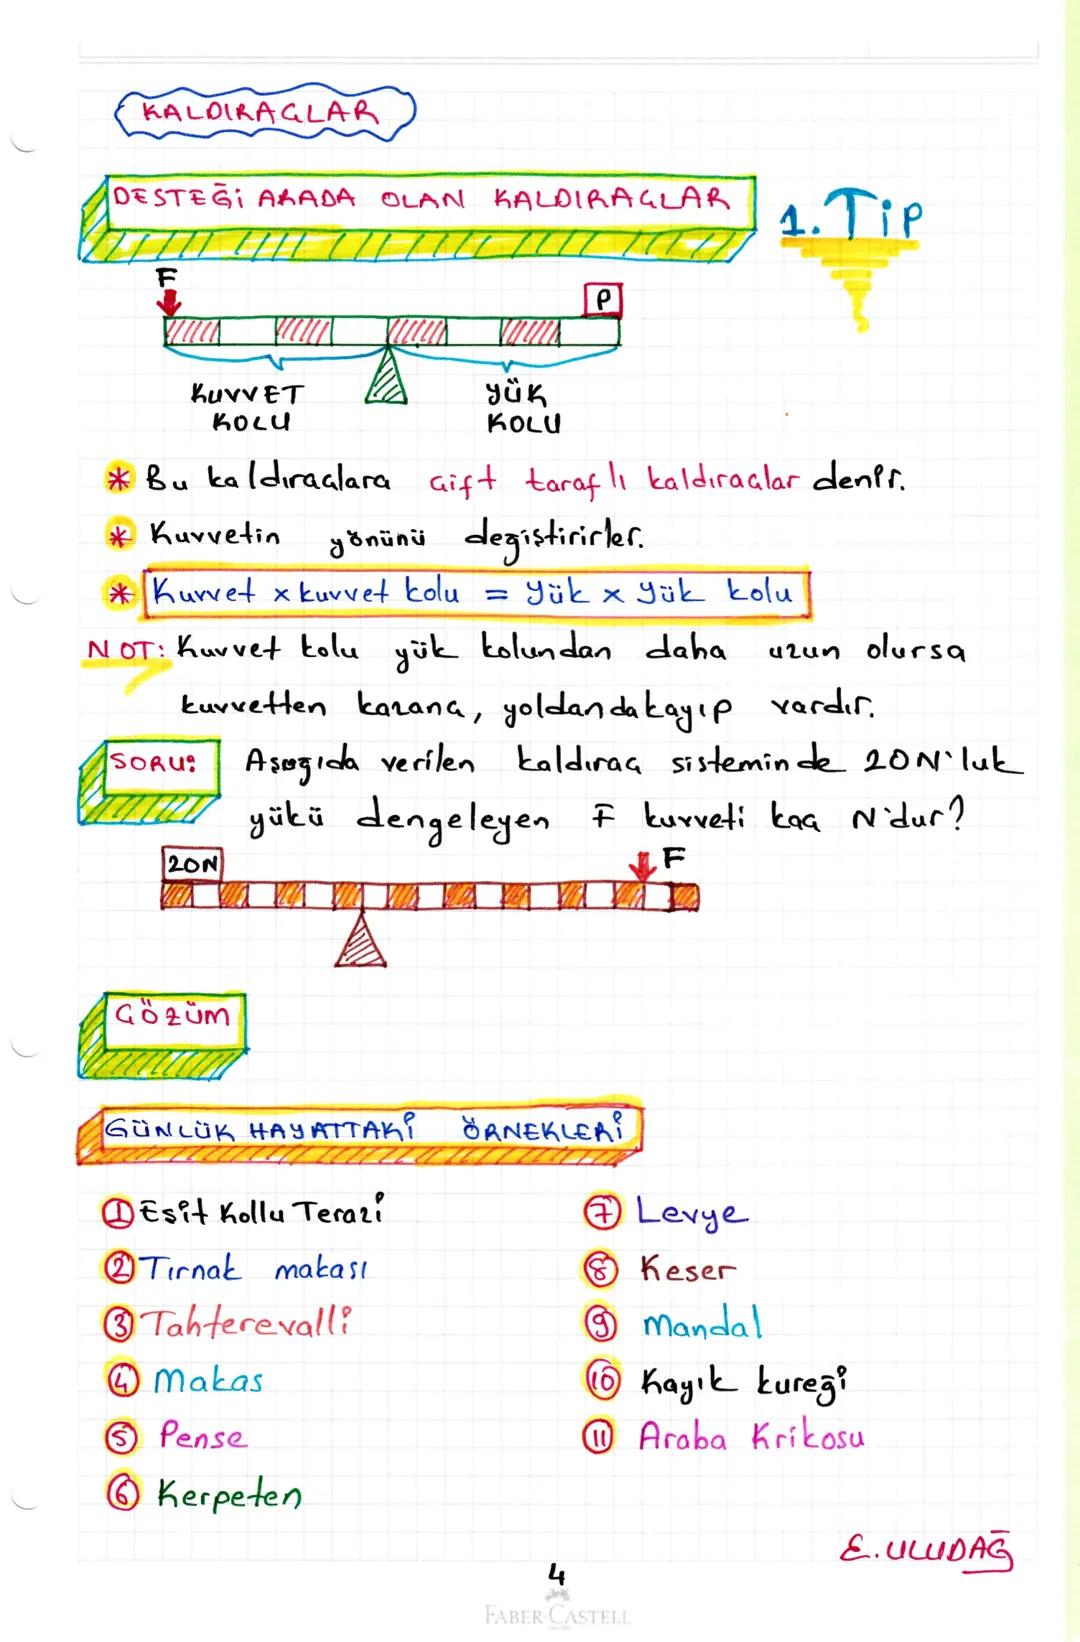 KALDIRAÇLAR
DESTEĞİ ARADA OLAN KALDIRAÇLAR
1. Tip
F
P
KUVVET KOLU
YÜK KOLU
* Bu kaldıraçlara çift taraflı kaldıraçlar denir.
* Kuvvetin yönünü değiştirirler.
* Kuvvet x kuvvet kolu = Yük x Yük kolu
NOT: Kuvvet kolu yük kolundan daha uzun olursa
kuvvetten kazanç, yoldan da kayıp vardır.
SORU: Aşağıda verilen kaldıraç sisteminde 20N'luk
yükü dengeleyen F kuvveti kaç N'dur?
20N
F
ÇÖZÜM
GÜNLÜK HAYATTAKİ ÖRNEKLERİ
1 Eşit Kollu Terazi
2 Tırnak makası
3 Tahterevalli
4 Makas
5 Pense
6 Kerpeten
7 Levye
8 Keser
9 Mandal
10 Kayık küreği
11 Araba Krikosu
E. ULUDAĞ
4
FABER-CASTELL